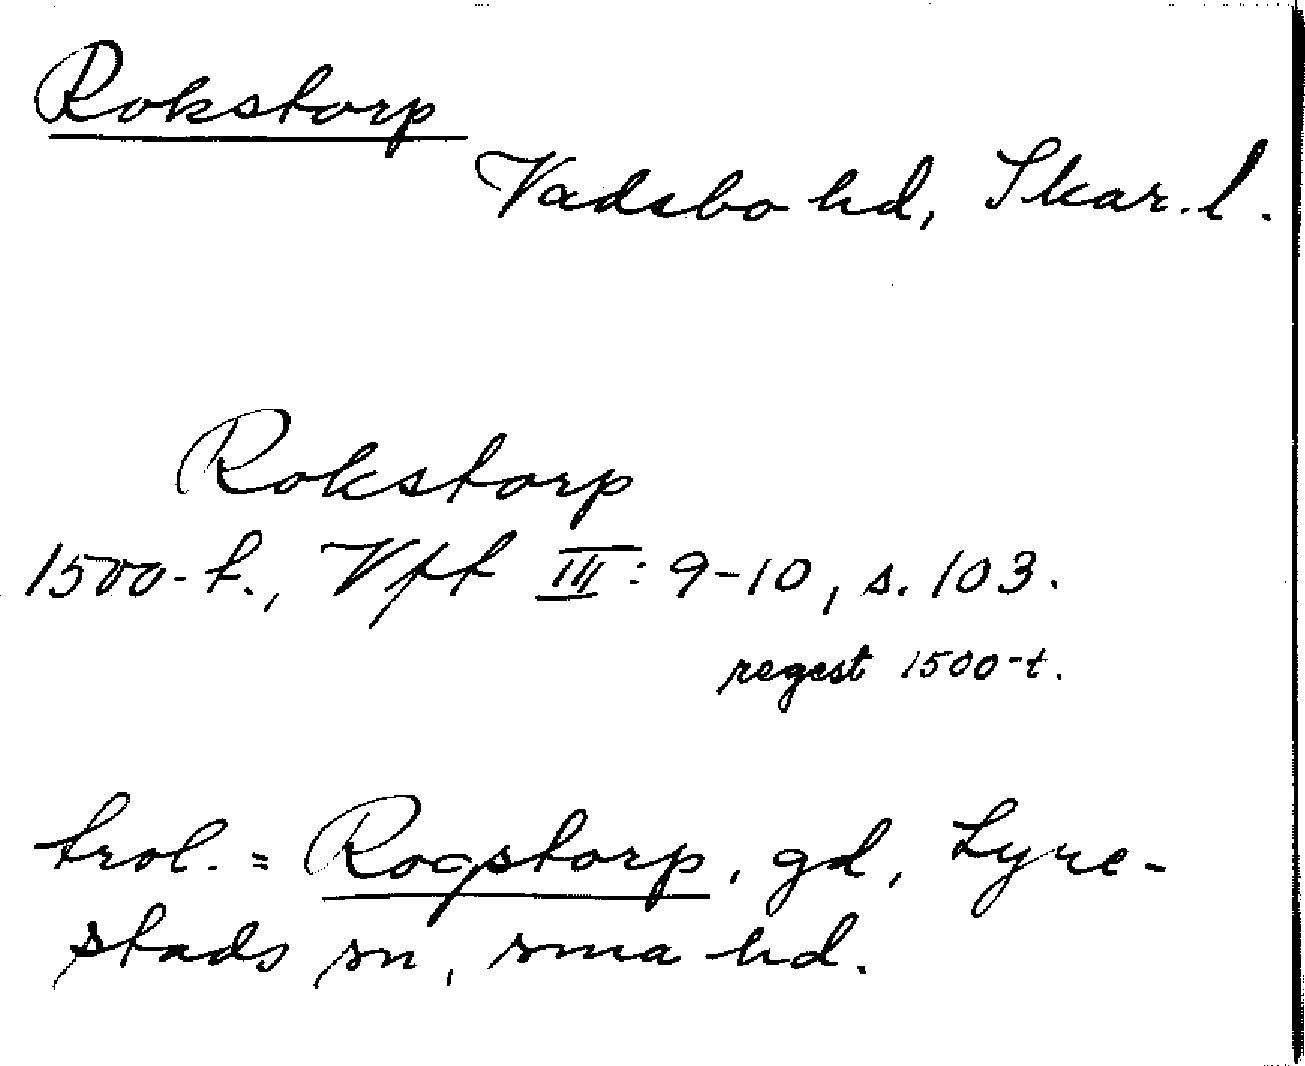 Rokstorp
Vadsbo hd, Skar. l.
Rokstorp
1500-t., Vft III: 9-10, s. 103.
regest 1500-t.
trol. = Rogstorp, gd, Lyre-
stads sn, sma hd.